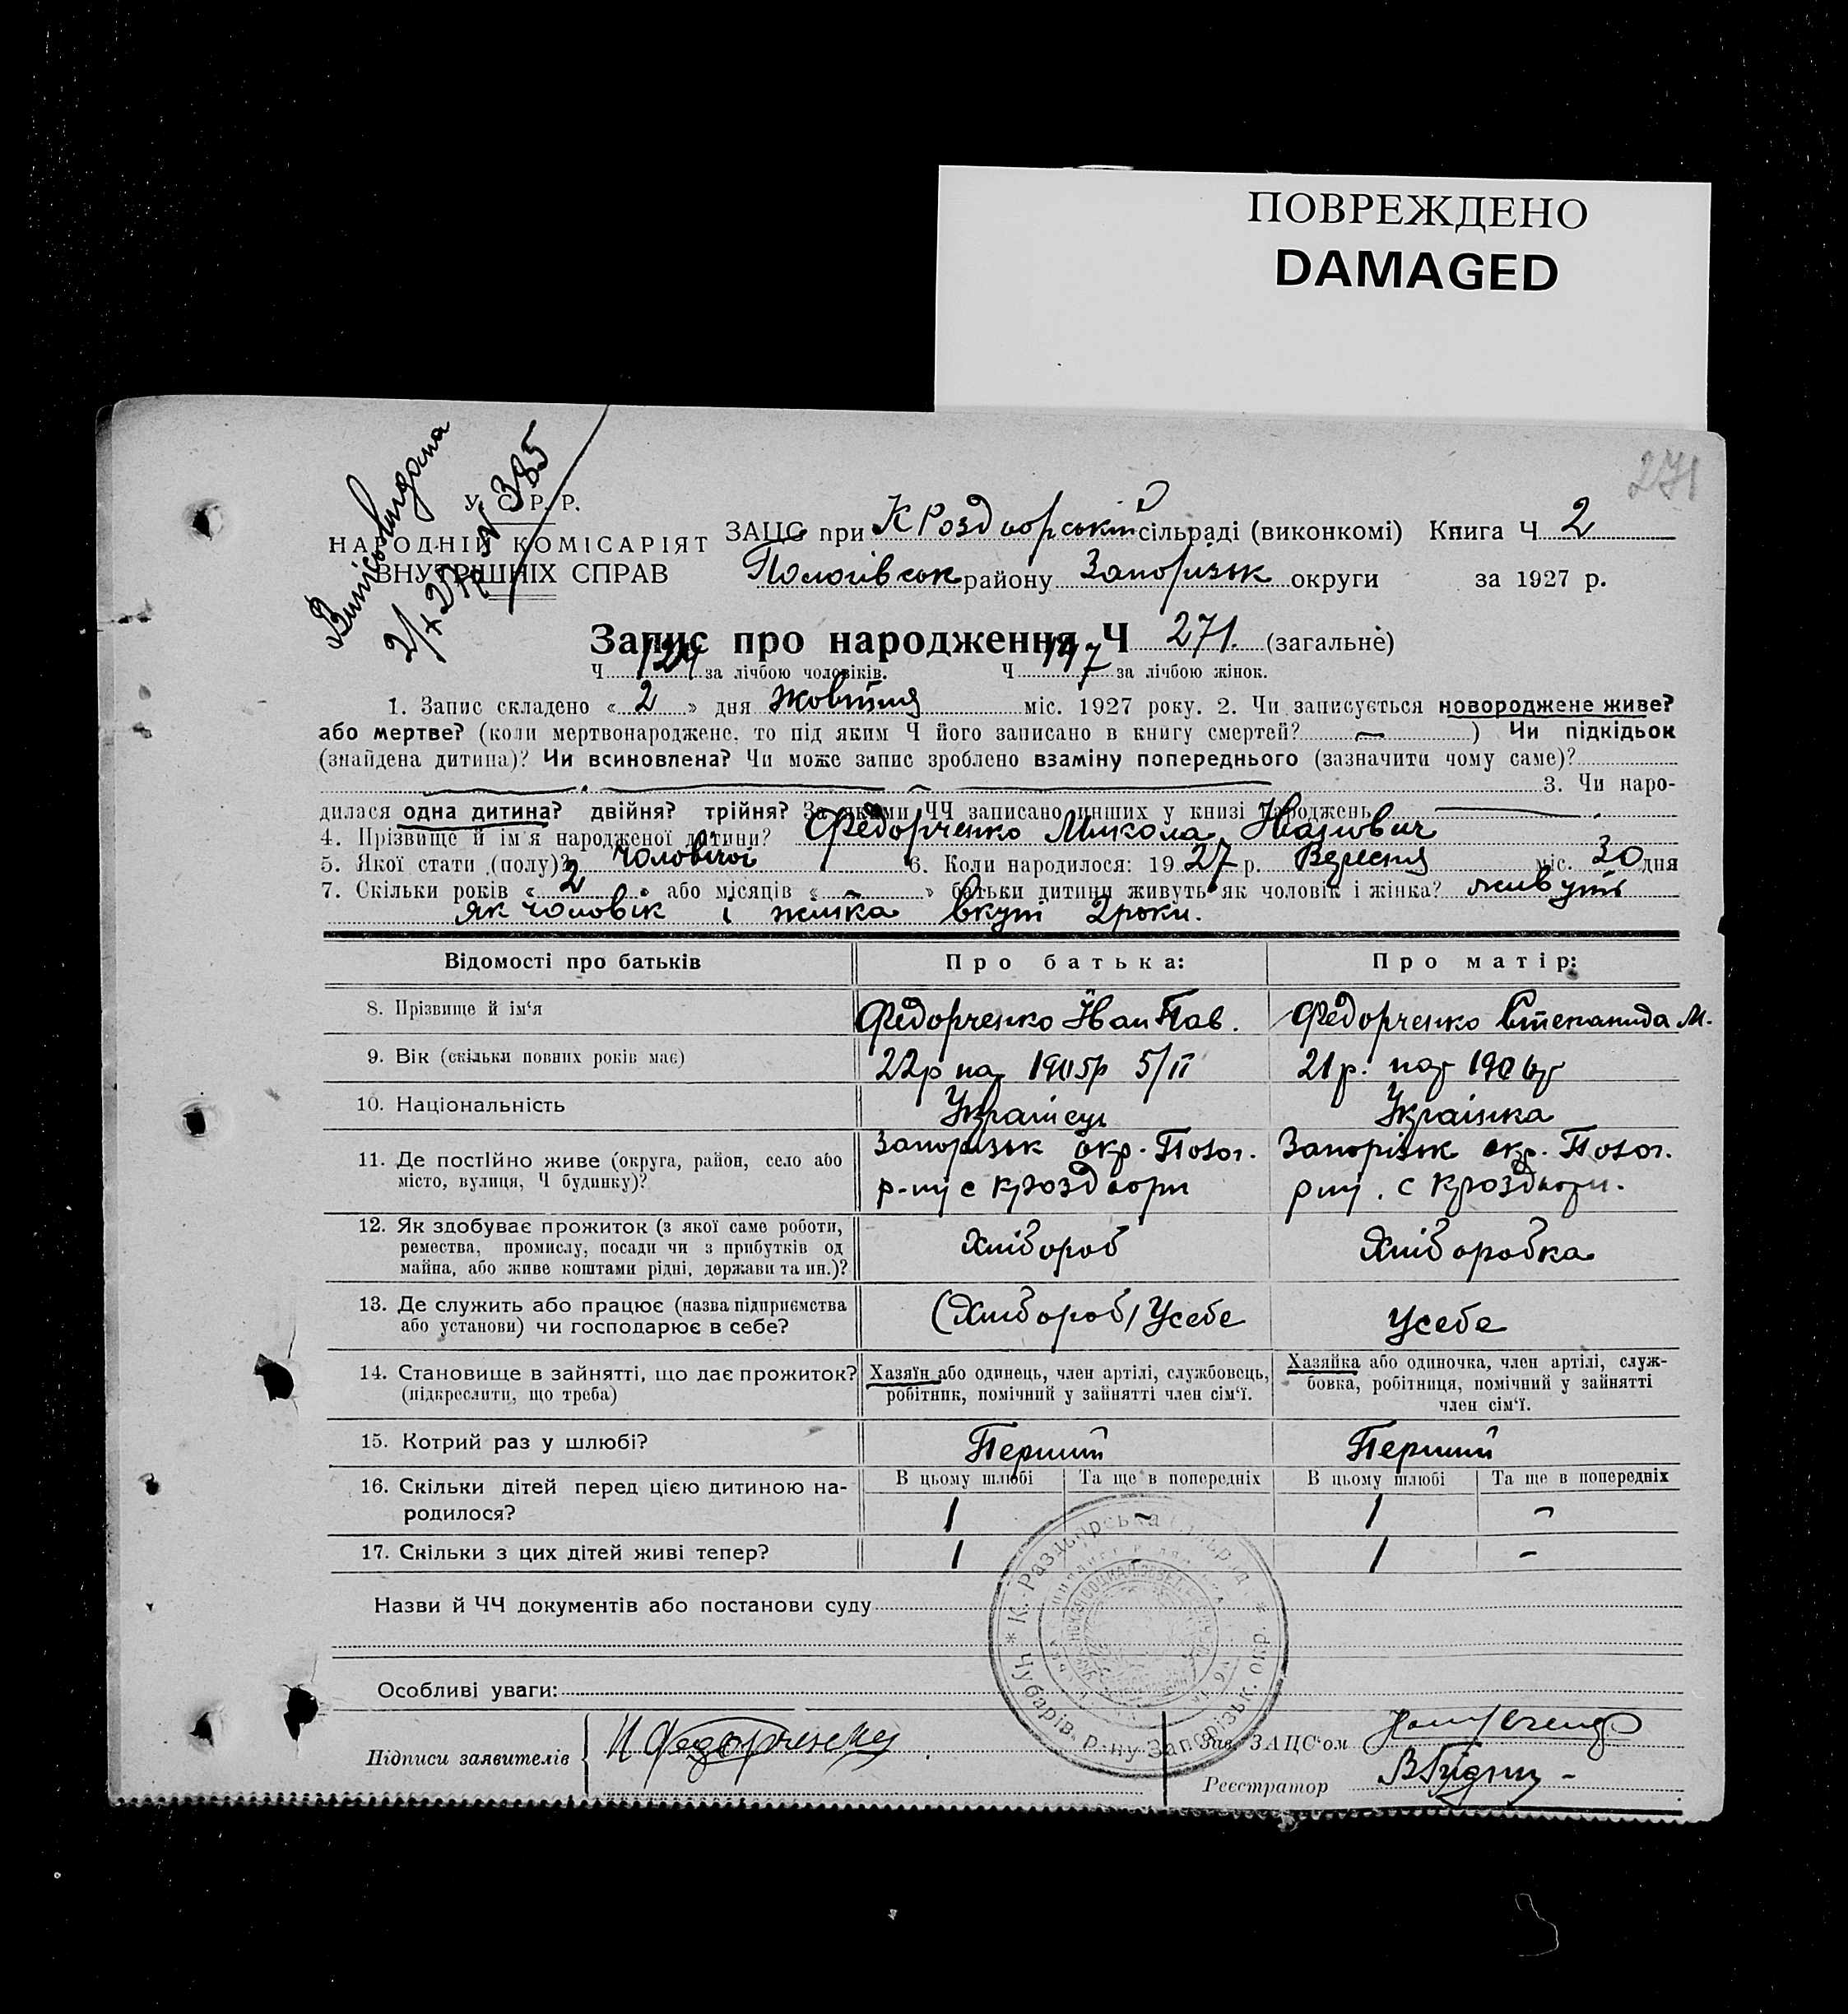 ПОВРЕЖДЕНО
DAMAGED
271
Випісь видана
2/X 27р N 385
У. С. Р. Р.
НАРОДНІЙ КОМІСАРІЯТ
ВНУТРІШНІХ СПРАВ
ЗАЦС при К Роздорській сільраді (виконкомі) Книга Ч 2
Пологівськ району Запорізьк округи за 1927 р.
Запис про народження Ч 271. (загальне)
Ч 124 за лічбою чоловіків. Ч 147 за лічбою жінок.
1. Запис складено « 2 » дня Жовтня міс. 1927 року. 2. Чи записується новороджене живе?
або мертве? (коли мертвонароджене, то під яким Ч його записано в книгу смертей? — ) Чи підкідьок
(знайдена дитина)? Чи всиновлена? Чи може запис зроблено взаміну попереднього (зазначити чому саме)?
3. Чи наро-
дилася одна дитина? двійня? трійня? За якими ЧЧ записано инших у книзі народжень
4. Прізвище й ім'я народженої дитини? Федорченко Микола Іванович
5. Якої стати (полу)? Чоловічої 6. Коли народилося: 1927 р. Вересня міс. 30 дня
7. Скільки років « 2 » або місяців « - » батьки дитини живуть як чоловік і жінка? живуть
як чоловік і жінка вкупі 2 роки.
Відомості про батьків Про батька: Про матір:
8. Прізвище й ім'я Федорченко Іван Пав. Федорченко Степанида М.
9. Вік (скільки повних років має) 22р на 1905р 5/II 21р. 1906р
10. Національність Українець Українка
11. Де постійно живе (округа, район, село або Запорізьк окр. Полог. Запорізьк окр. Полог.
місто, вулиця, Ч будинку)? р-ну с Кроздори р-ну. с Кроздори.
12. Як здобуває прожиток (з якої саме роботи,
ремества, промислу, посади чи з прибутків од Хлібороб Хліборобка
майна, або живе коштами рідні, держави та ин.)?
13. Де служить або працює (назва підприємства (Хлібороб) Усебе Усебе
або установи) чи господарює в себе?
14. Становище в зайнятті, що дає прожиток? Хазяїн або одинець, член артілі, службовець, Хазяйка або одиночка, член артілі, служ-
(підкреслити, що треба) робітник, помічний у зайнятті член сім'ї. бовка, робітниця, помічний у зайнятті
член сім'ї.
15. Котрий раз у шлюбі? Перший Перший
В цьому шлюбі Та ще в попередніх В цьому шлюбі Та ще в попередніх
16. Скільки дітей перед цією дитиною на- 1 - 1 -
родилося?
17. Скільки з цих дітей живі тепер? 1 1 -
Назви й ЧЧ документів або постанови суду
Особливі уваги:
* К.-Раздьорська сільрад. * Чубарів. р-ну Запорізьк. окр.
Підписи заявителів И Федорченко Зав. ЗАЦС'ом
Реєстратор